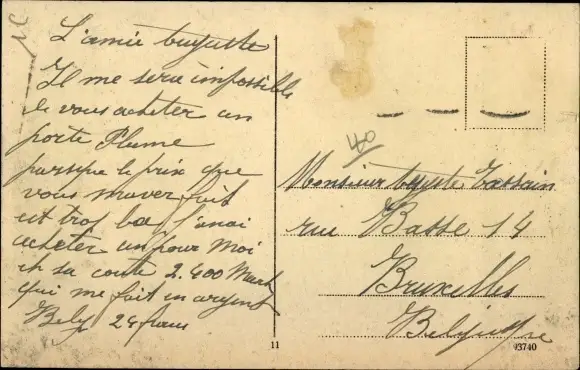 L'amie
Il me sera impossible
de vous acheter un
porte Plume
parsque le prix que
vous
est trop bas
acheter un pour Moi
et sa coute 2.400 Mark
qui me fait en argent
Belg 24 frans
40
Monsieur
rue Basse 14
Bruxelles
Belgique
11
03740